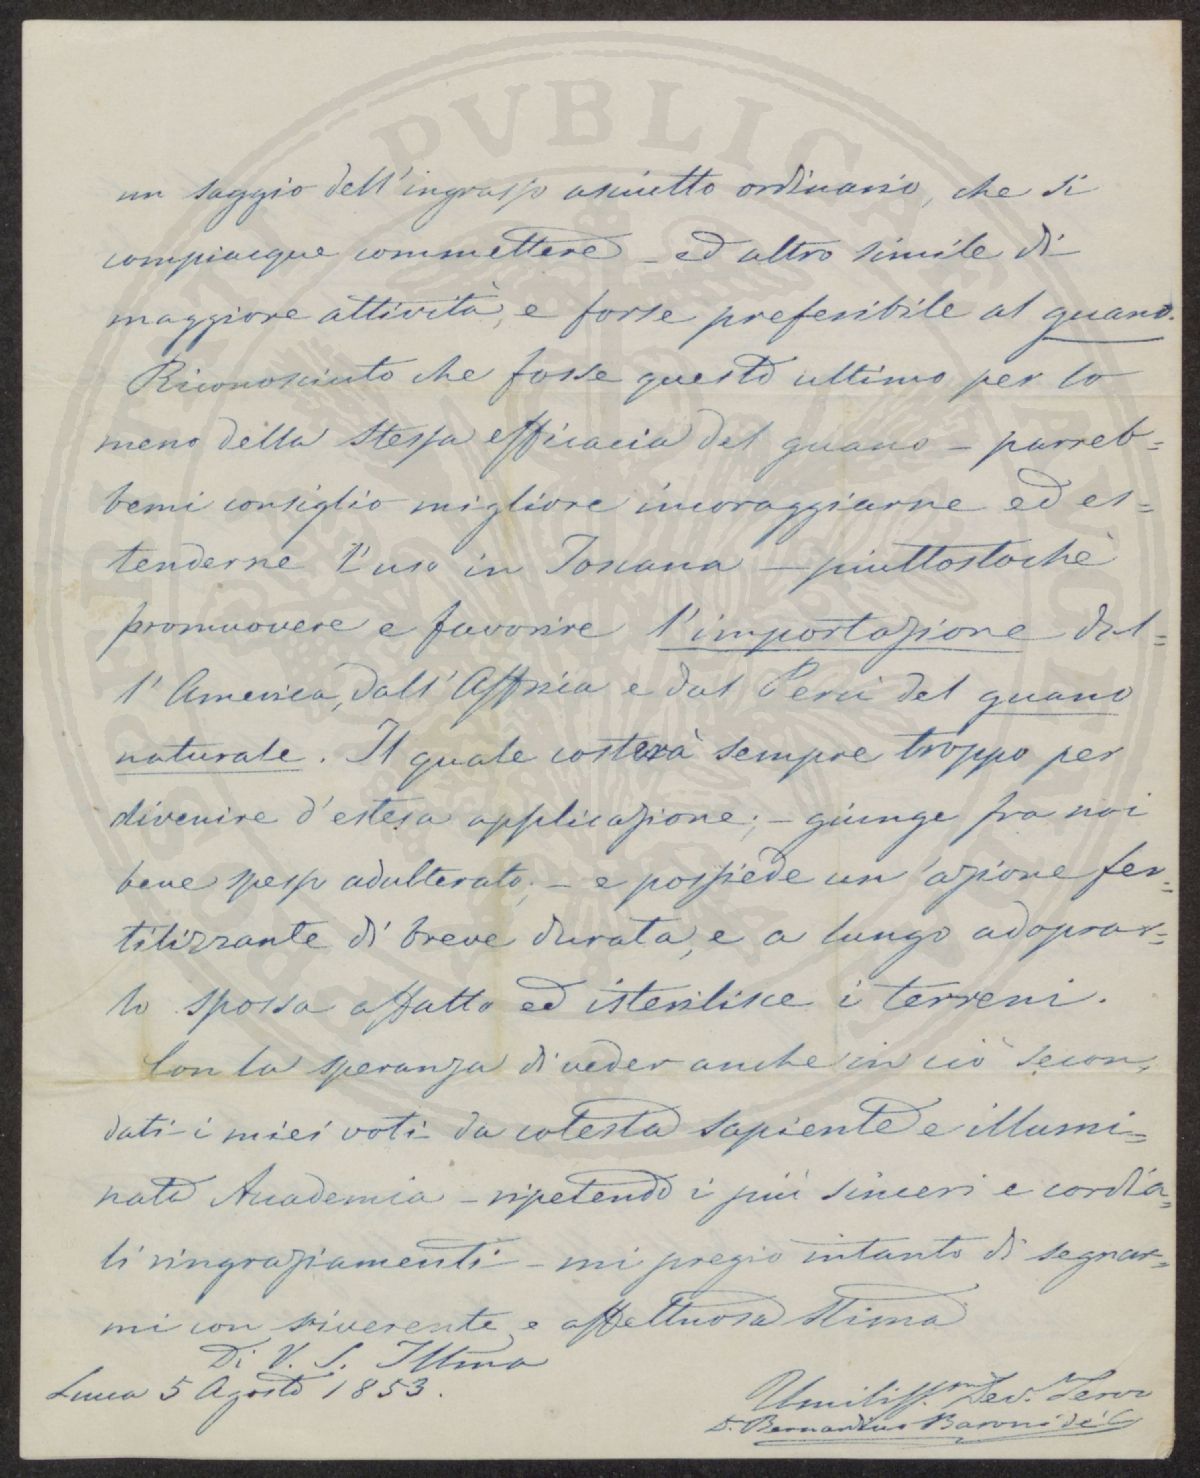 un saggio dell'ingrasso asciutto ordinario, che si
compiacque commettere – ed altro simile di
maggiore attività, e forse preferibile al guano.
Riconosciuto che fosse questo ultimo per lo
meno della stessa efficacia del guano – parreb=
bemi consiglio migliore incoraggiarne ed es=
tenderne l'uso in Toscana – piuttostochè
promuovere e favorire l'importazione dal=
l'America, dall'Affrica e dal Perù del guano
naturale. Il quale costerà sempre troppo per
divenire d'estesa applicazione; – giunge fra noi
bene spesso adulterato; – e possiede un'azione fer=
tilizzante di breve durata, e a lungo adoprar=
lo spossa affatto ed isterilisce i terreni.
Con la speranza di veder anche in ciò secon=
dati i miei voti da cotesta sapiente e illumi=
nata Accademia – ripetendo i più sinceri e cordia=
li ringraziamenti – mi pregio intanto di segnar=
mi con riverente e affettuosa stima
Di V. S. Illma
Lucca 5 Agosto 1853.
Umiliss.mo Dev.o Servo
D. Bernardino Baroni
PVBLIC